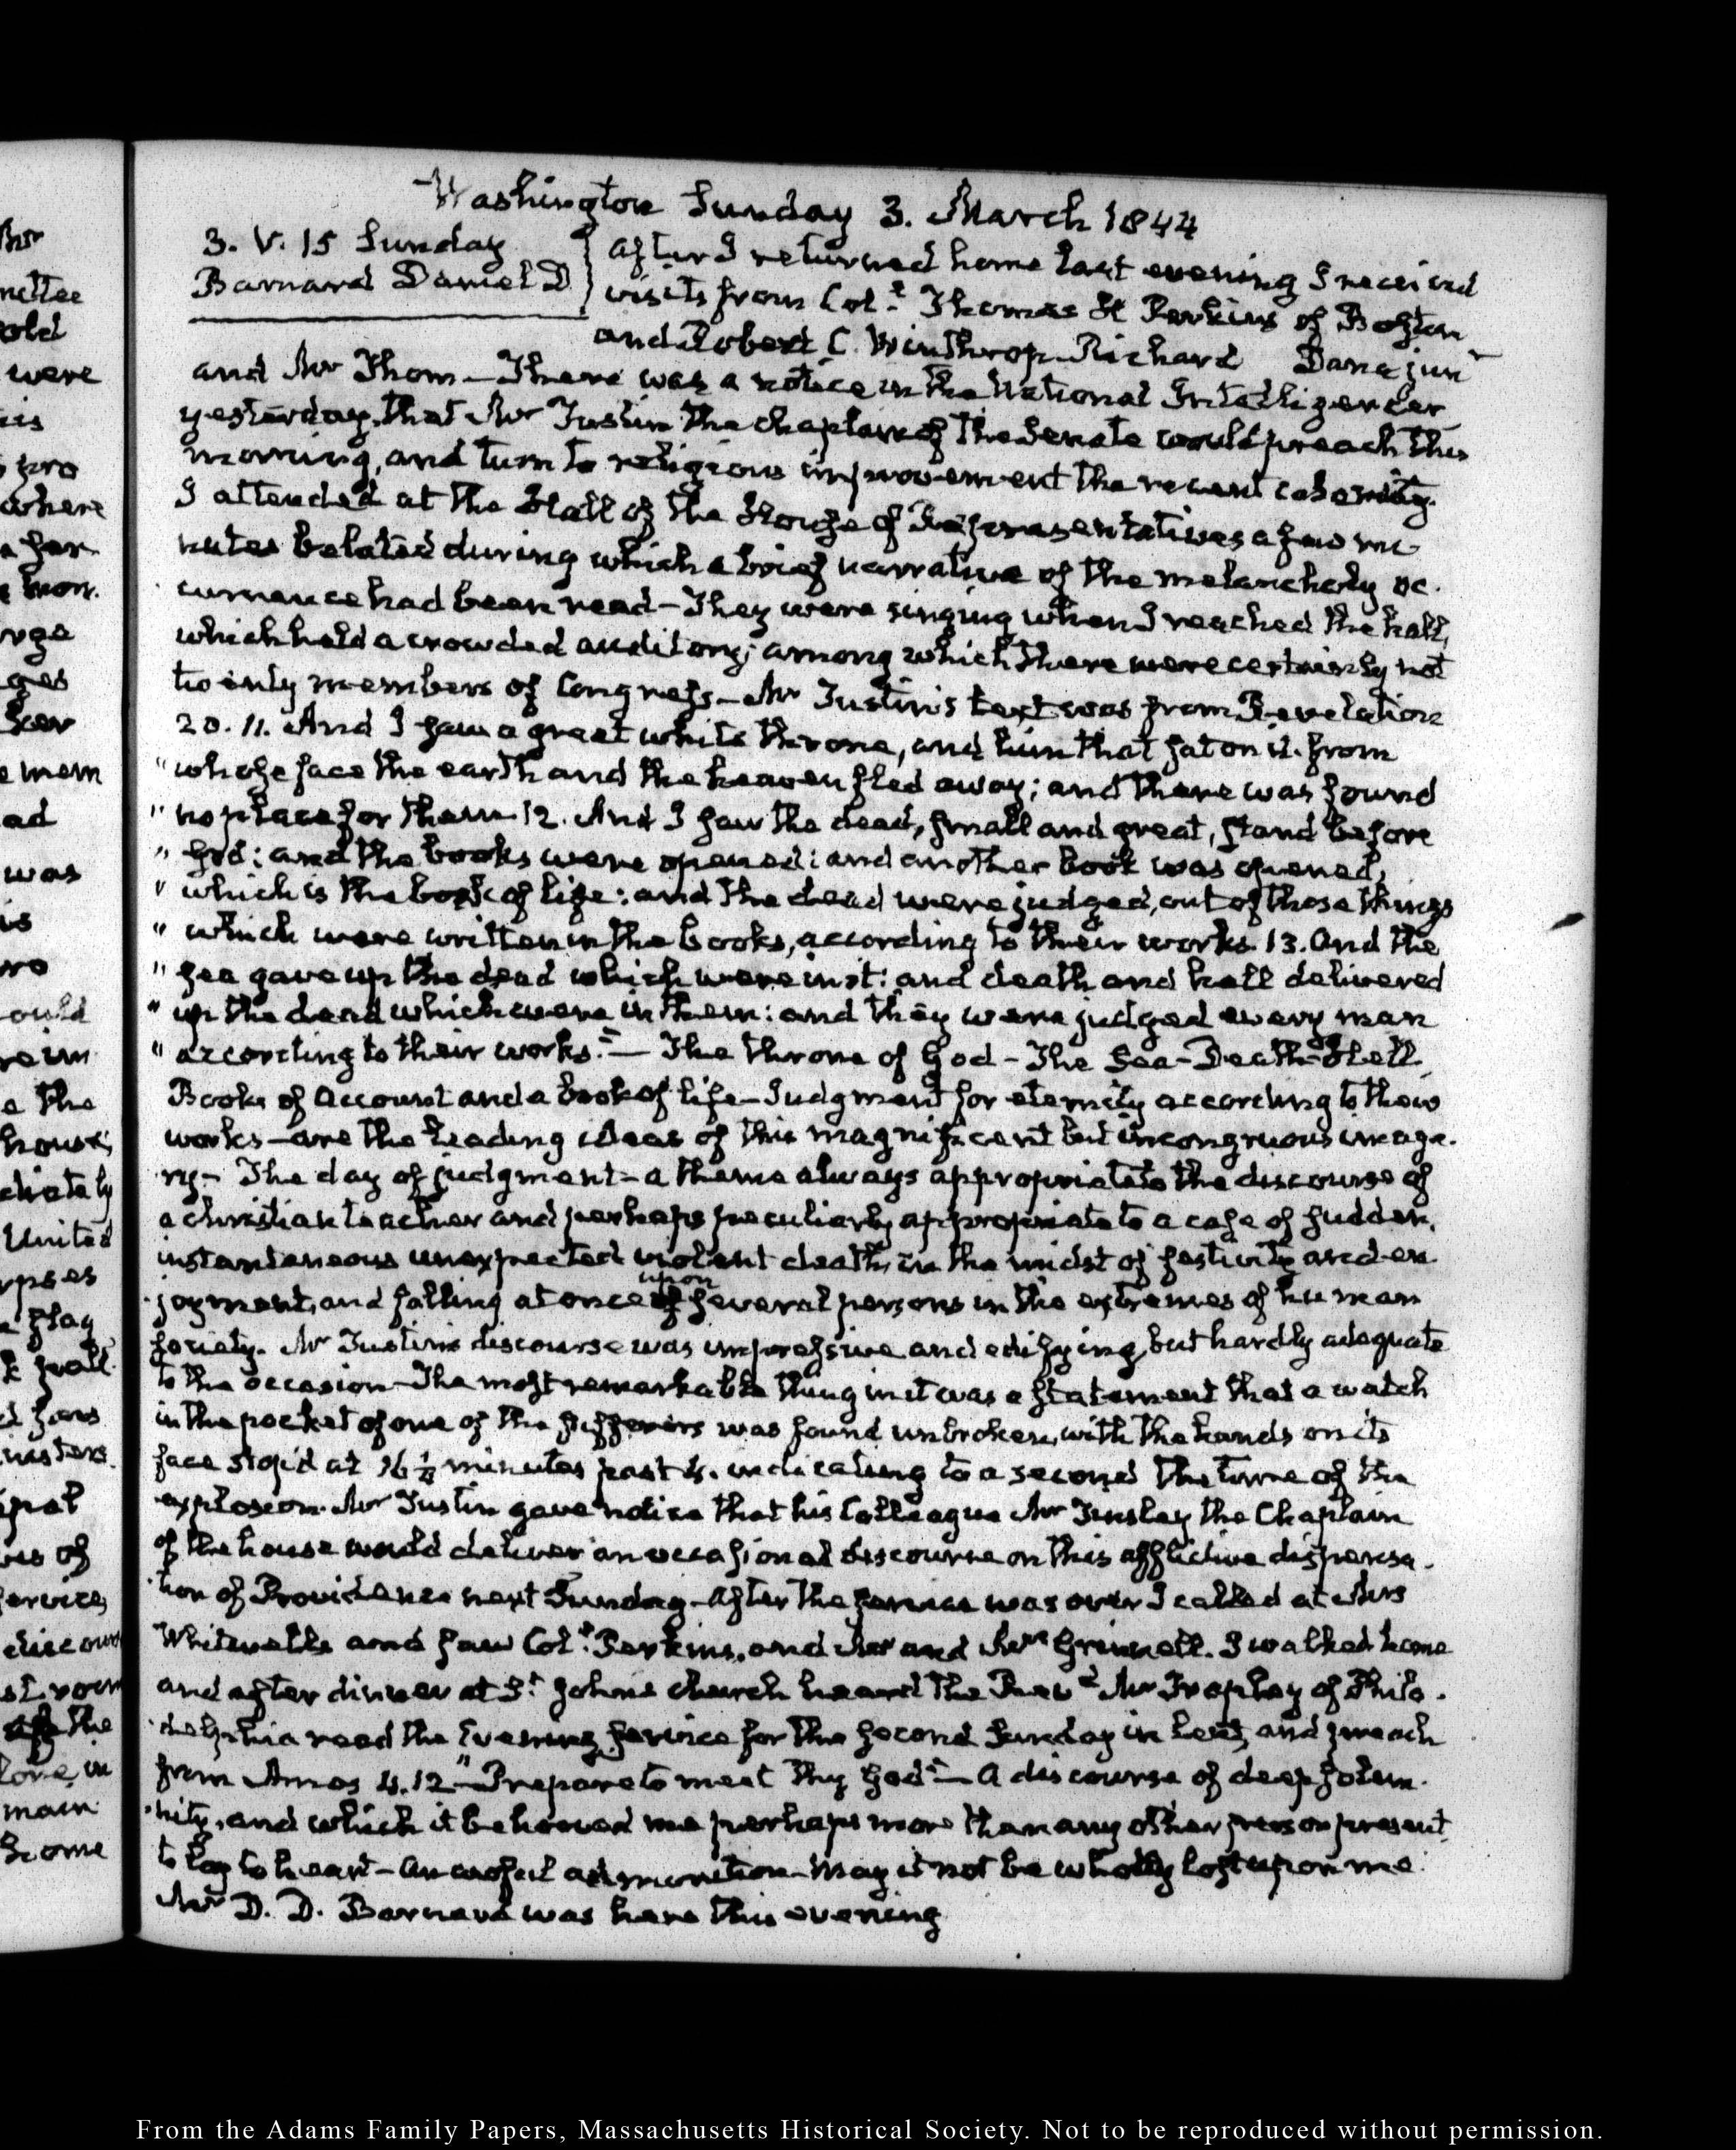 Washington Sunday 3. March 1844
3. V. 15 Sunday
Barnard Daniel D
After I returned home last evening I received
visits from Colt. Thomas H Perkins of Boston
and Robert C. Winthrop Richard Dana junr
and Mr Thom — There was a notice in the National Intelligencer
yesterday, that Mr Tustin the chaplain of the Senate would preach this
morning, and turn to religious improvement the recent calamity.
I attended at the Hall of the House of Representatives a few mi
nutes belated during which a brief narrative of the melancholy oc.
currence had been read — They were singing when I reached the hall,
which held a crowded auditory; among which there were certainly not
twenty members of Congress — Mr Tustin's text was from Revelation
20. 11. And I saw a great white throne, and him that sat on it. from
" whose face the earth and the heaven fled away; and there was found
" no place for them 12. And I saw the dead, small and great, stand before
" God: and the books were opened: and another book was opened,
" which is the book of life: and the dead were judged, out of those things
" which were written in the books, according to their works. 13. And the
" sea gave up the dead which were in it: and death and hell delivered
" up the dead which were in them: and they were judged every man
" according to their works." — The throne of God — The Sea — Death — Hell
Books of Account and a book of life — Judgment for eternity according to their
works — are the leading ideas of this magnificent but incongruous image.
ry — The day of judgment — a theme always appropriate to the discourse of
a christian teacher and perhaps peculiarly appropriate to a case of sudden,
instantaneous unexpected violent death, in the midst of festivity and en
joyment, and falling at once upon several persons in the extremes of human
society. Mr Tustin's discourse was impressive and edifying, but hardly adequate
to the occasion — The most remarkable thing in it was a statement that a watch
in the pocket of one of the sufferers was found unbroken, with the hands on its
face stop'd at 16 ½ minutes past 4. indicating to a second the time of the
explosion. Mr Tustin gave notice that his Colleague Mr Tinsley the Chaplain
of the house would deliver an occasional discourse on this afflictive dispensa.
tion of Providence next Sunday — After the service was over I called at Mrs
Whitwell's and saw Colt. Perkins, and Mr and Mrs Grinnell. I walked home
and after dinner at St. Johns church heard the Revd Mr Trapley of Phila.
delphia read the Evening service for the second Sunday in Lent, and preach
from Amos 4. 12 "Prepare to meet thy God" — A discourse of deep solem.
nity, and which it behooved me perhaps more than any other person present
to lay to heart — An awful admonition — May it not be wholly lost upon me.
Mr D. D. Barnard was here this evening
From the Adams Family Papers, Massachusetts Historical Society. Not to be reproduced without permission.